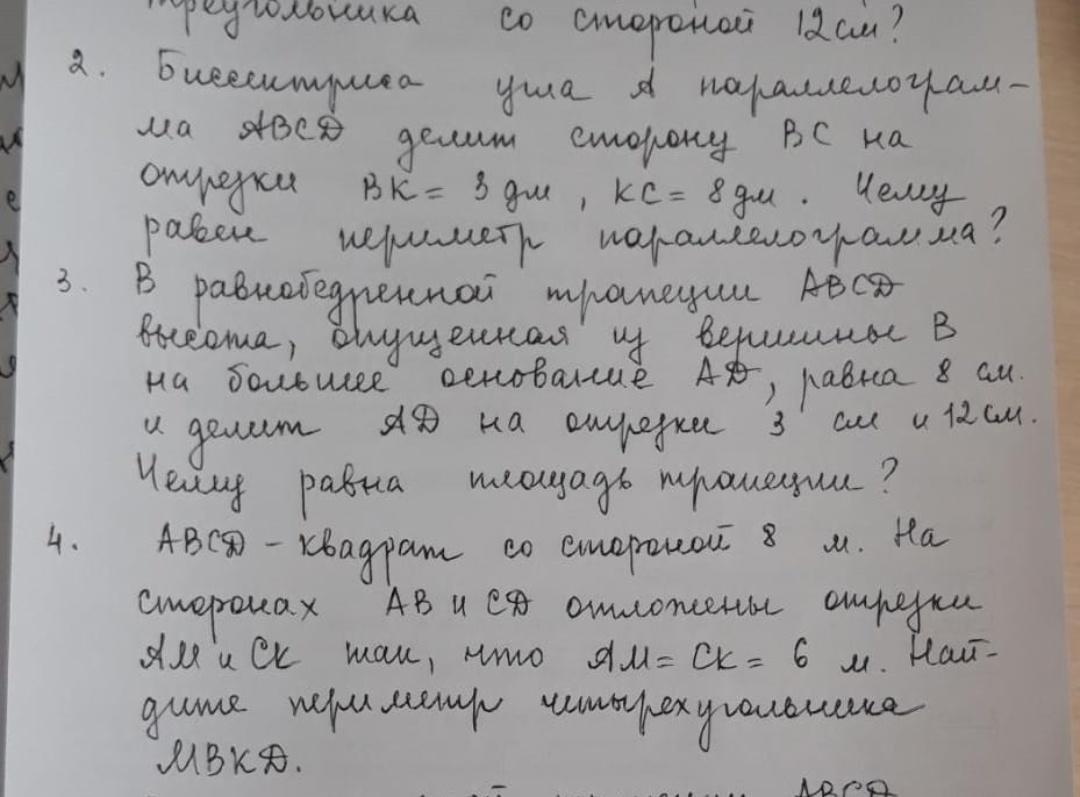 треугольника со стороной 12 см?
2. Биссектриса угла А параллелограм-
ма ABCD делит сторону ВС на
отрезки ВК = 3 дм, КС = 8 дм. Чему
равен периметр параллелограмма?
3. В равнобедренной трапеции ABCD
высота, опущенная из вершины В
на большее основание AD, равна 8 см.
и делит AD на отрезки 3 см и 12 см.
Чему равна площадь трапеции?
4. ABCD - квадрат со стороной 8 м. На
сторонах АВ и CD отложены отрезки
АМ и СК так, что АМ = СК = 6 м. Най-
дите периметр четырехугольника
MBKD.
ABCD